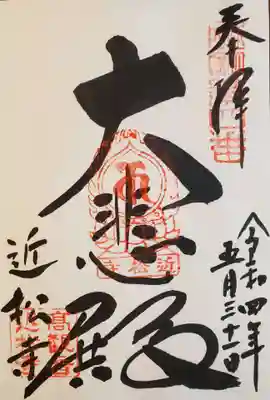 奉拝
令和四年
五月三十一日
大悲殿
近松寺
高観音